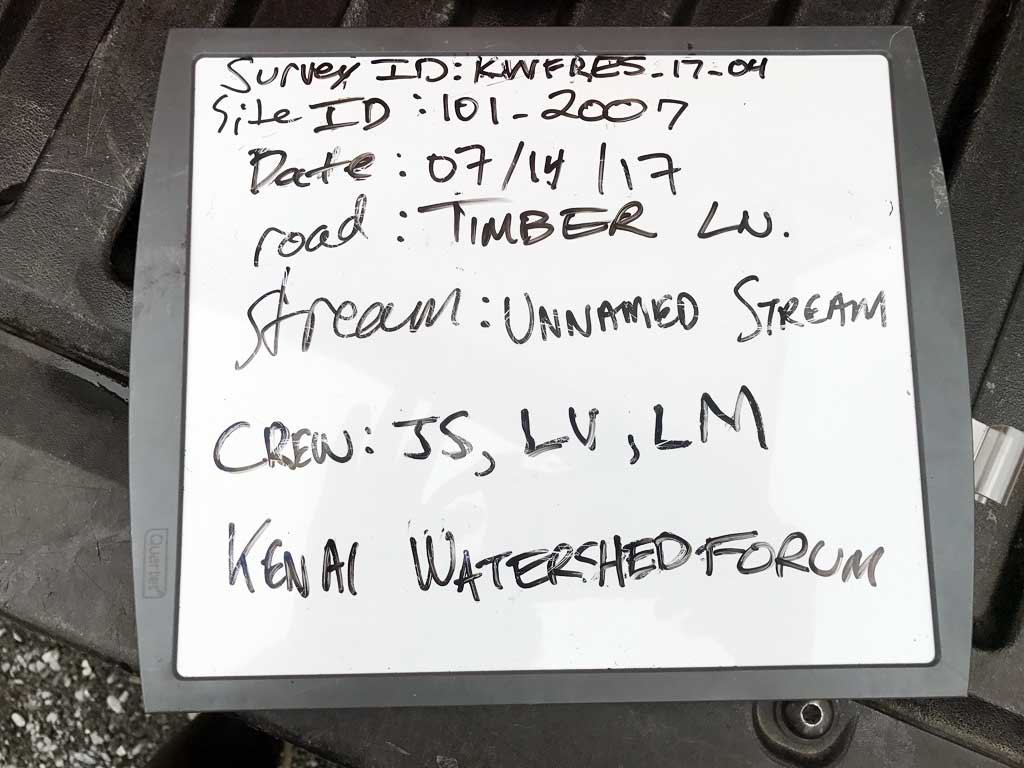 Survey ID: KWFRES-17-04
Site ID: 101-2007
Date: 07/14/17
road: TIMBER LN.
stream: UNNAMED STREAM
CREW: JS, LV, LM
KENAI WATERSHED FORUM
Quartet